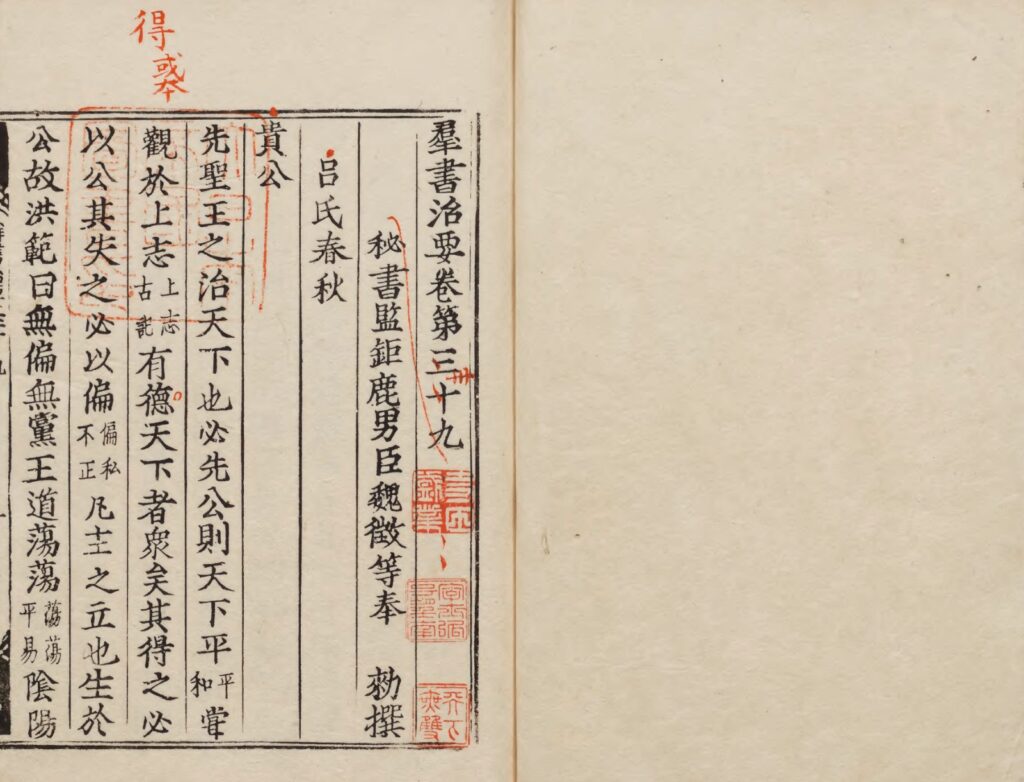 羣書治要卷第三十九
秘書監鉅鹿男臣魏徵等奉 勑撰
吕氏春秋
貴公
先聖王之治天下也必先公則天下平平和甞
觀於上志上志古記有德天下者衆矣其得之必
以公其失之必以偏偏私不正凡主之立也生於
公故洪範曰無偏無黨王道蕩蕩蕩蕩平易陰陽
得或本
卅
天下無雙